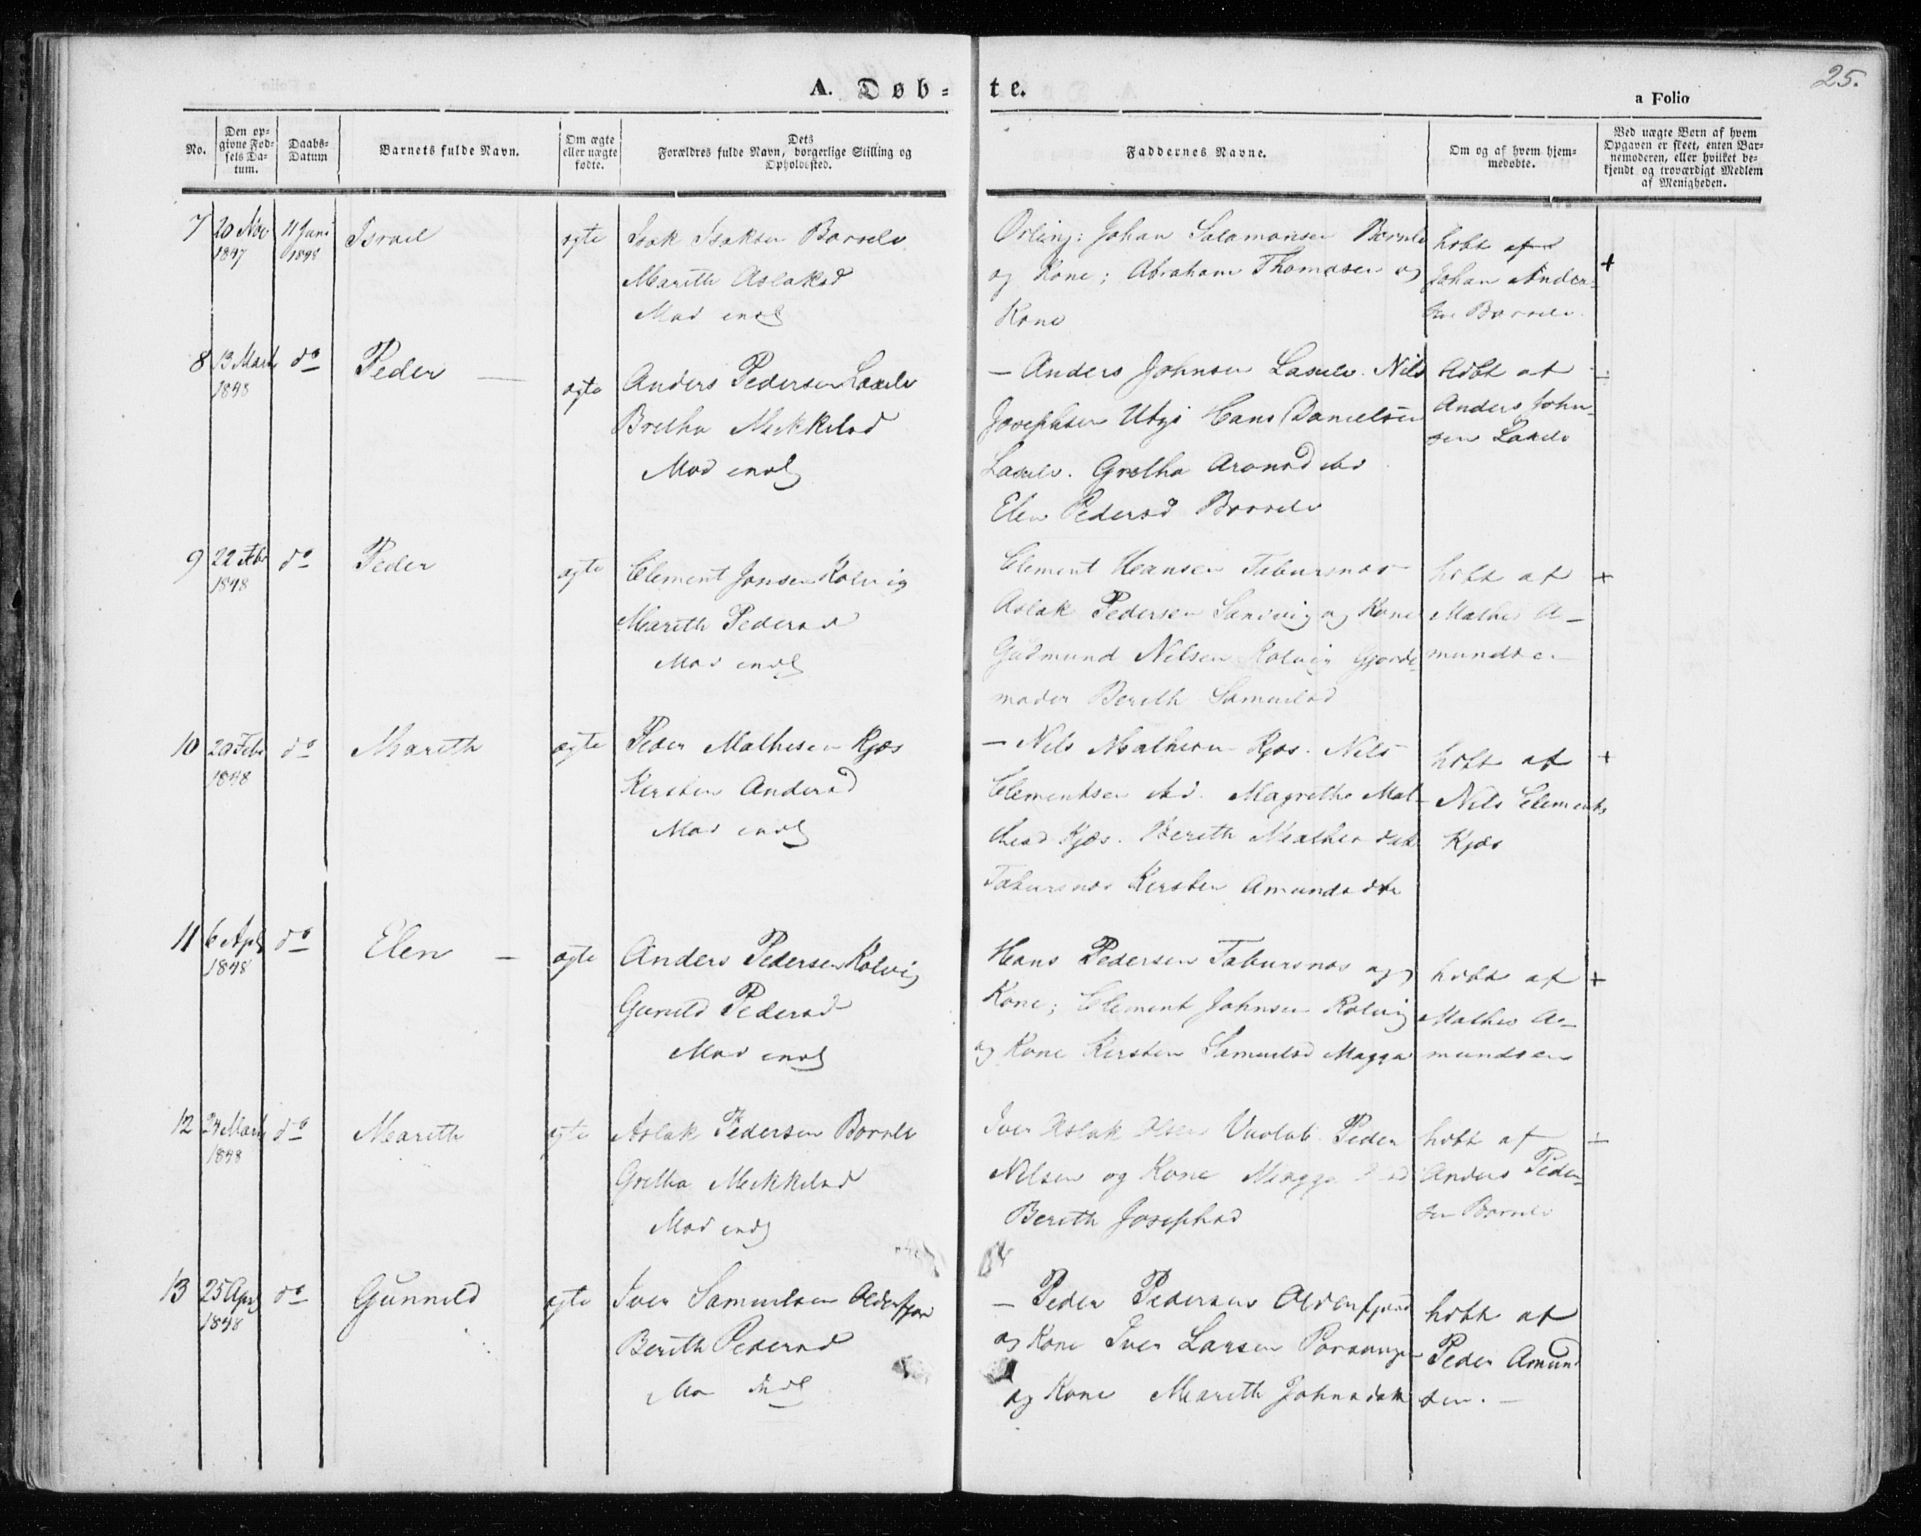 25.
A. Døb-te.
a Folio
No.
Den op-
givne Fød-
sels Da-
tum.
Daabs-
Datum
Barnets fulde Navn.
Om ægte
eller uægte
fødte.
Dets
Forældres fulde Navn, borgerlige Stilling og
Opholdssted.
Faddernes Navne.
Om og af hvem hjem-
medøbte.
Ved uægte Børn af hvem
Opgaven er skeet, enten Bar-
nemoderen, eller hvilket be-
kjendt og troværdigt Medlem
af Menigheden.
7
20 Nov
1847
11 Juni
1848
Israel
ægte
Isak Isaksen Børselv
Marith Aslaksd
Mod indl
Johan Salamonsen Børselv
og Kone; Abraham Thomasen og
Kone
hdbt af
Johan Ander-
sen Børselv
+
8
13 Marts
1848
do
Peder
ægte
Anders Pedersen Laxelv
Bretha Mikkelsd
Mod indl
- Anders Johnsen Laxelv. Nils
Josephsen Utsji Hans Danielsen
Laxelv. Gretha Aronsd
Elen Pedersd Børselv
hdbt af
Anders John-
sen Laxelv
9
22 Feb
1848
do
Peder
ægte
Clement Jonsen Kolvig
Marith Pedersd
Mod indl
Clement Hansen Tabursnæs
Aslak Pedersen Sandvig og Kone
Gudmund Nilsen Kolvig Gjorde-
moder Berith Samuelsd
hdbt af
Mathis A-
mundsen
+
10
20 Feb
1848
do
Marith
ægte
Peder Mathisen Kjæs
Kirsten Andersd
Mod indl
- Nils Mathisen Kjæs. Nils
Clementsen Magrethe Mat-
hisd Kjæs. Berith Mathisdatr
Tabursnæs Kirsten Amundsdtr
hdbt af
Nils Clements
Kjæs
+
11
6 Apl
1848
do
Elen
ægte
Anders Pedersen Kolvig
Gunild Pedersd
Mod indl
Hans Pedersen Tabursnæs og
Kone; Clement Johnsen Kolvig
og Kone Kirsten Samuelsd Magga
hdbt af
Mathis A-
mundsen
+
12
24 Marts
1848
do
Marith
ægte
Aslak Pedersen Børselv
Gretha Mikkelsd
Mod indl
Iver Aslak Peder
Nilsen og Kone Magga
Berith Josephsd
hdbt af
Anders Peder-
sen Børselv
13
25 Apl
1848
do
Gunnild
ægte
Iver Samuelsen Olderfjor
Berith Pedersd
Mo indl
- Peder Pedersen Olderfjord
og Kone Iver Larsen Porsanger
og Kone Marith Johnsdatr
hdbt af
Peder Amund
sen. -